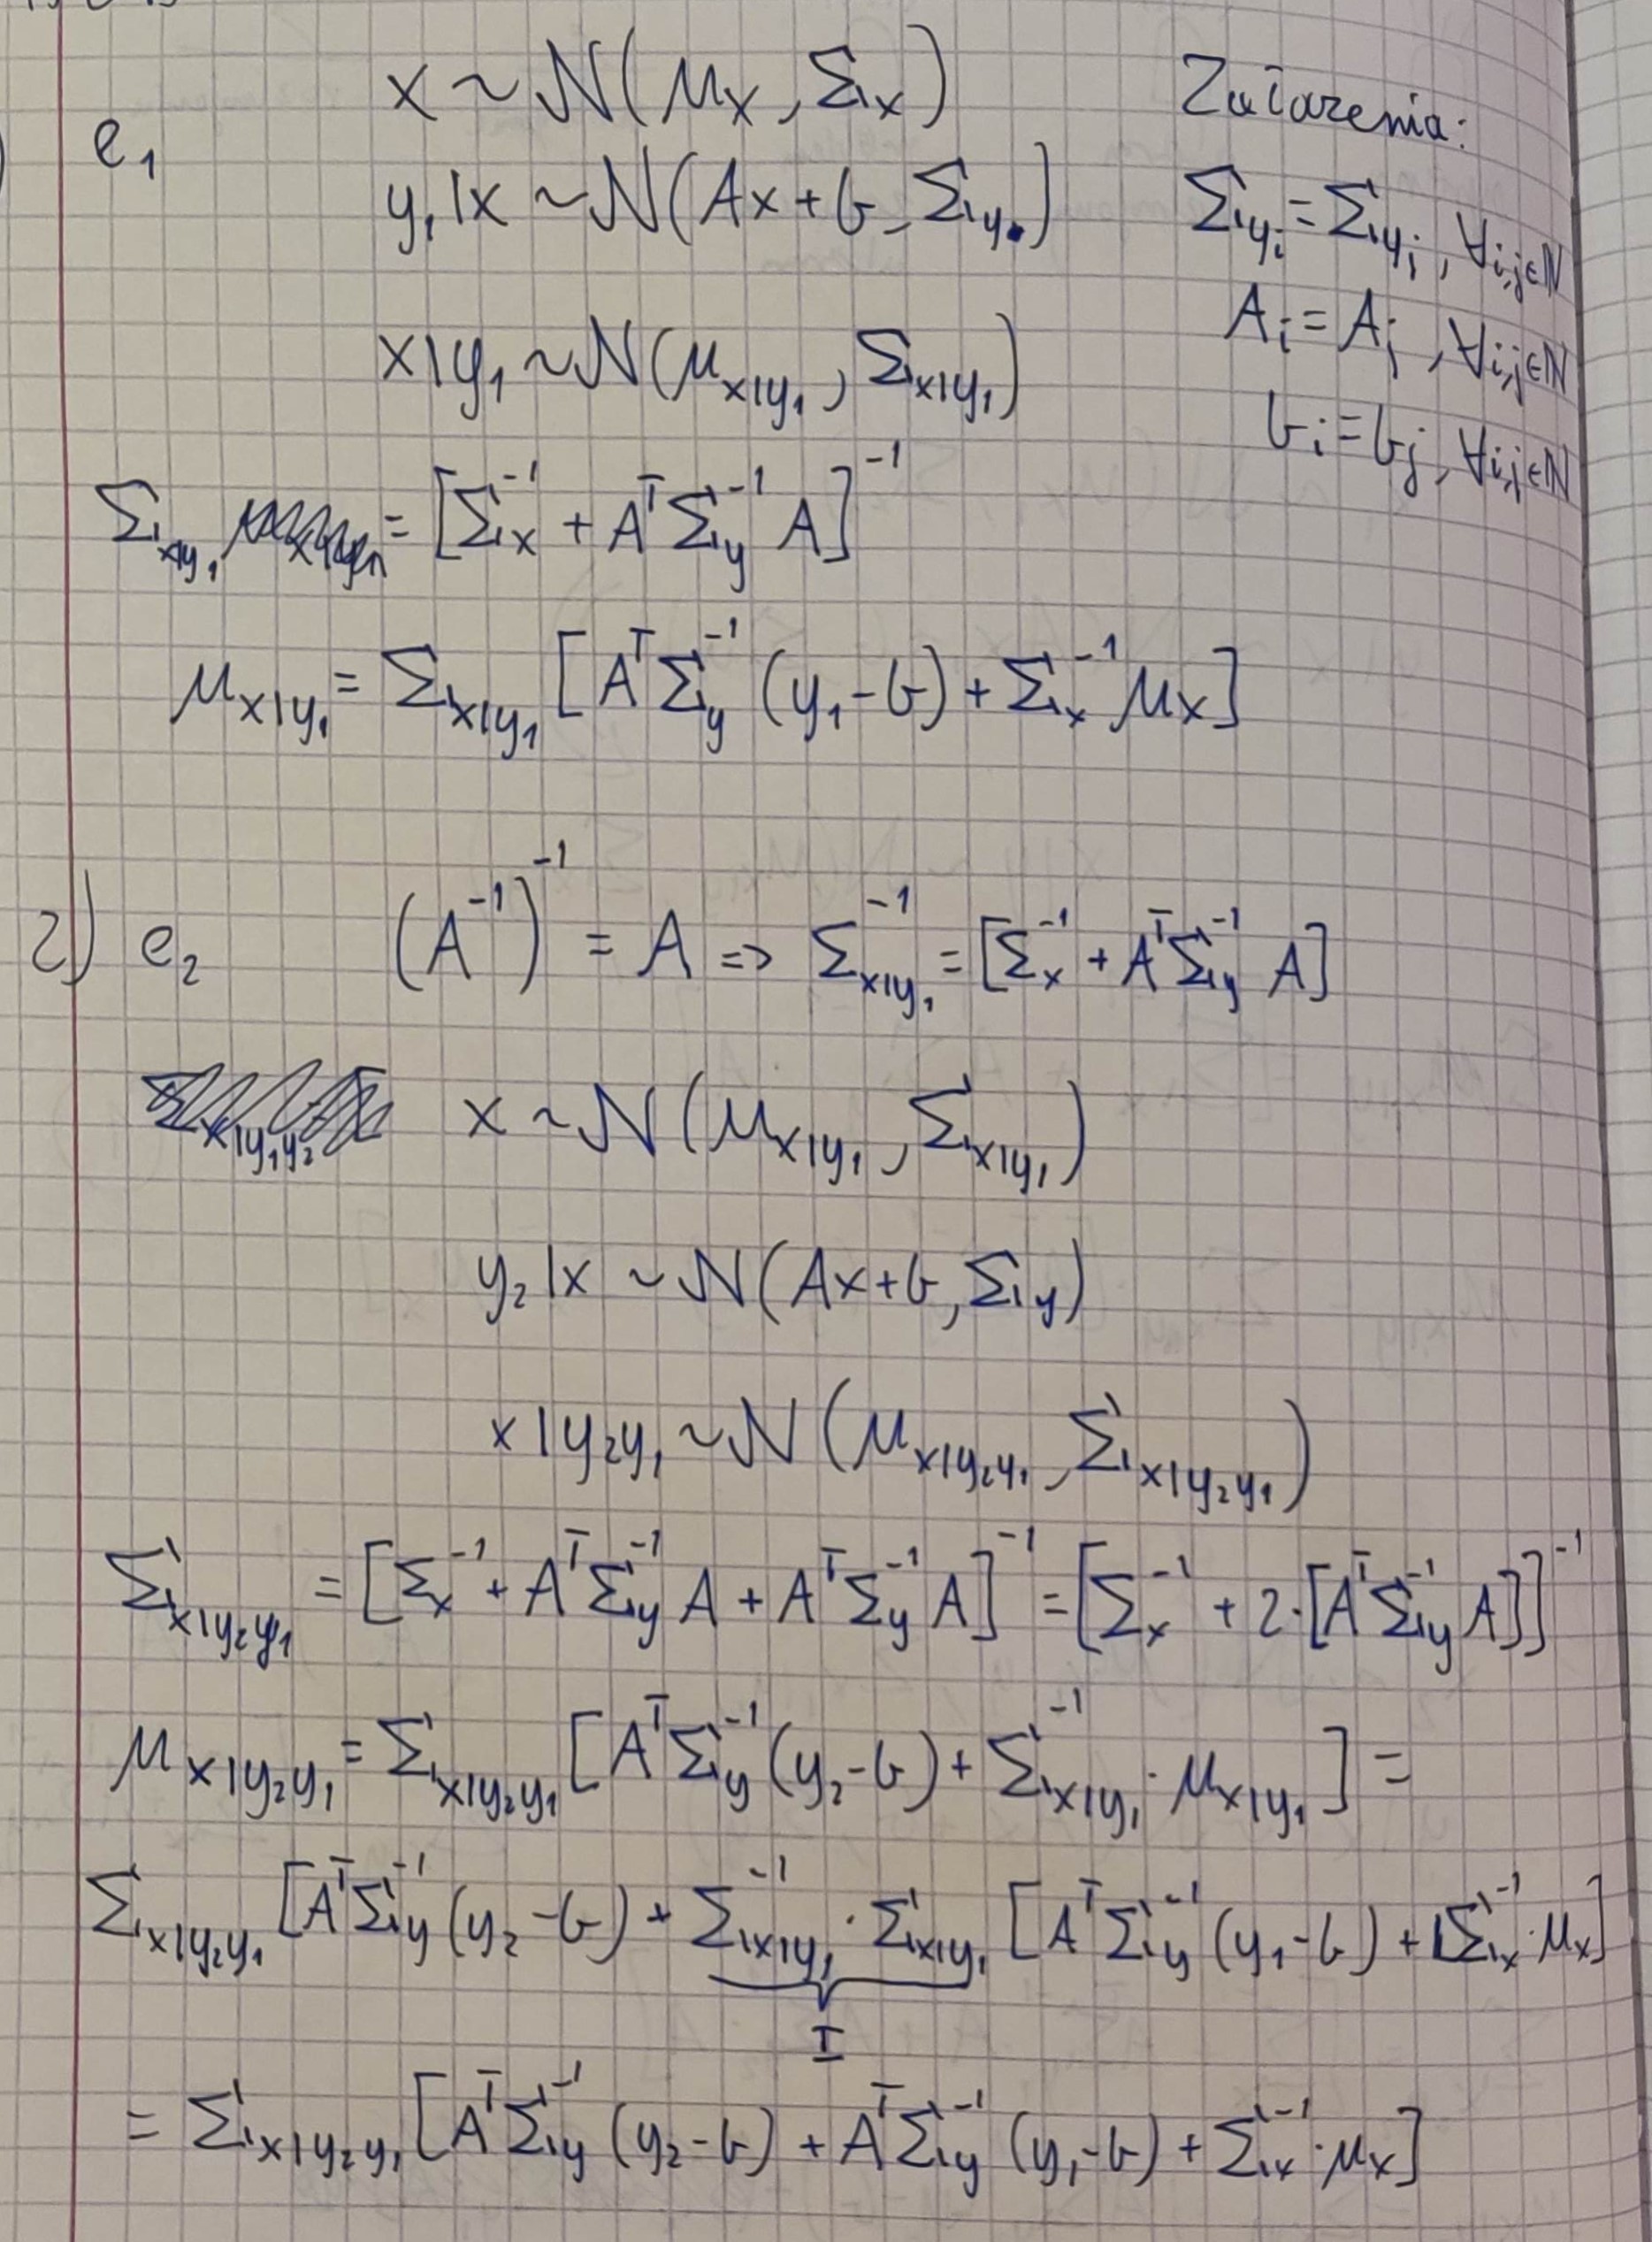 e₁ x ~ N(μ_x, Σ_x)
Założenia:
y₁|x ~ N(Ax + b, Σ_y)
Σ_{y_i} = Σ_{y_j}, ∀_{i,j∈ℕ}
A_i = A_j, ∀_{i,j∈ℕ}
x|y₁ ~ N(μ_{x|y₁}, Σ_{x|y₁})
b_i = b_j, ∀_{i,j∈ℕ}
Σ_{x|y₁} = [Σ_x⁻¹ + AᵀΣ_y⁻¹A]⁻¹
μ_{x|y₁} = Σ_{x|y₁}[AᵀΣ_y⁻¹(y₁-b) + Σ_x⁻¹μ_x]
2) e₂ (A⁻¹)⁻¹ = A => Σ_{x|y₁}⁻¹ = [Σ_x⁻¹ + AᵀΣ_y⁻¹A]
x ~ N(μ_{x|y₁}, Σ_{x|y₁})
y₂|x ~ N(Ax+b, Σ_y)
x|y₂y₁ ~ N(μ_{x|y₂y₁}, Σ_{x|y₂y₁})
Σ_{x|y₂y₁} = [Σ_x⁻¹ + AᵀΣ_y⁻¹A + AᵀΣ_y⁻¹A]⁻¹ = [Σ_x⁻¹ + 2·[AᵀΣ_y⁻¹A]]⁻¹
μ_{x|y₂y₁} = Σ_{x|y₂y₁}[AᵀΣ_y⁻¹(y₂-b) + Σ_{x|y₁}⁻¹·μ_{x|y₁}] =
Σ_{x|y₂y₁}[AᵀΣ_y⁻¹(y₂-b) + Σ_{x|y₁}⁻¹·Σ_{x|y₁}[AᵀΣ_y⁻¹(y₁-b) + Σ_x⁻¹·μ_x]
I
= Σ_{x|y₂y₁}[AᵀΣ_y⁻¹(y₂-b) + AᵀΣ_y⁻¹(y₁-b) + Σ_x⁻¹·μ_x]